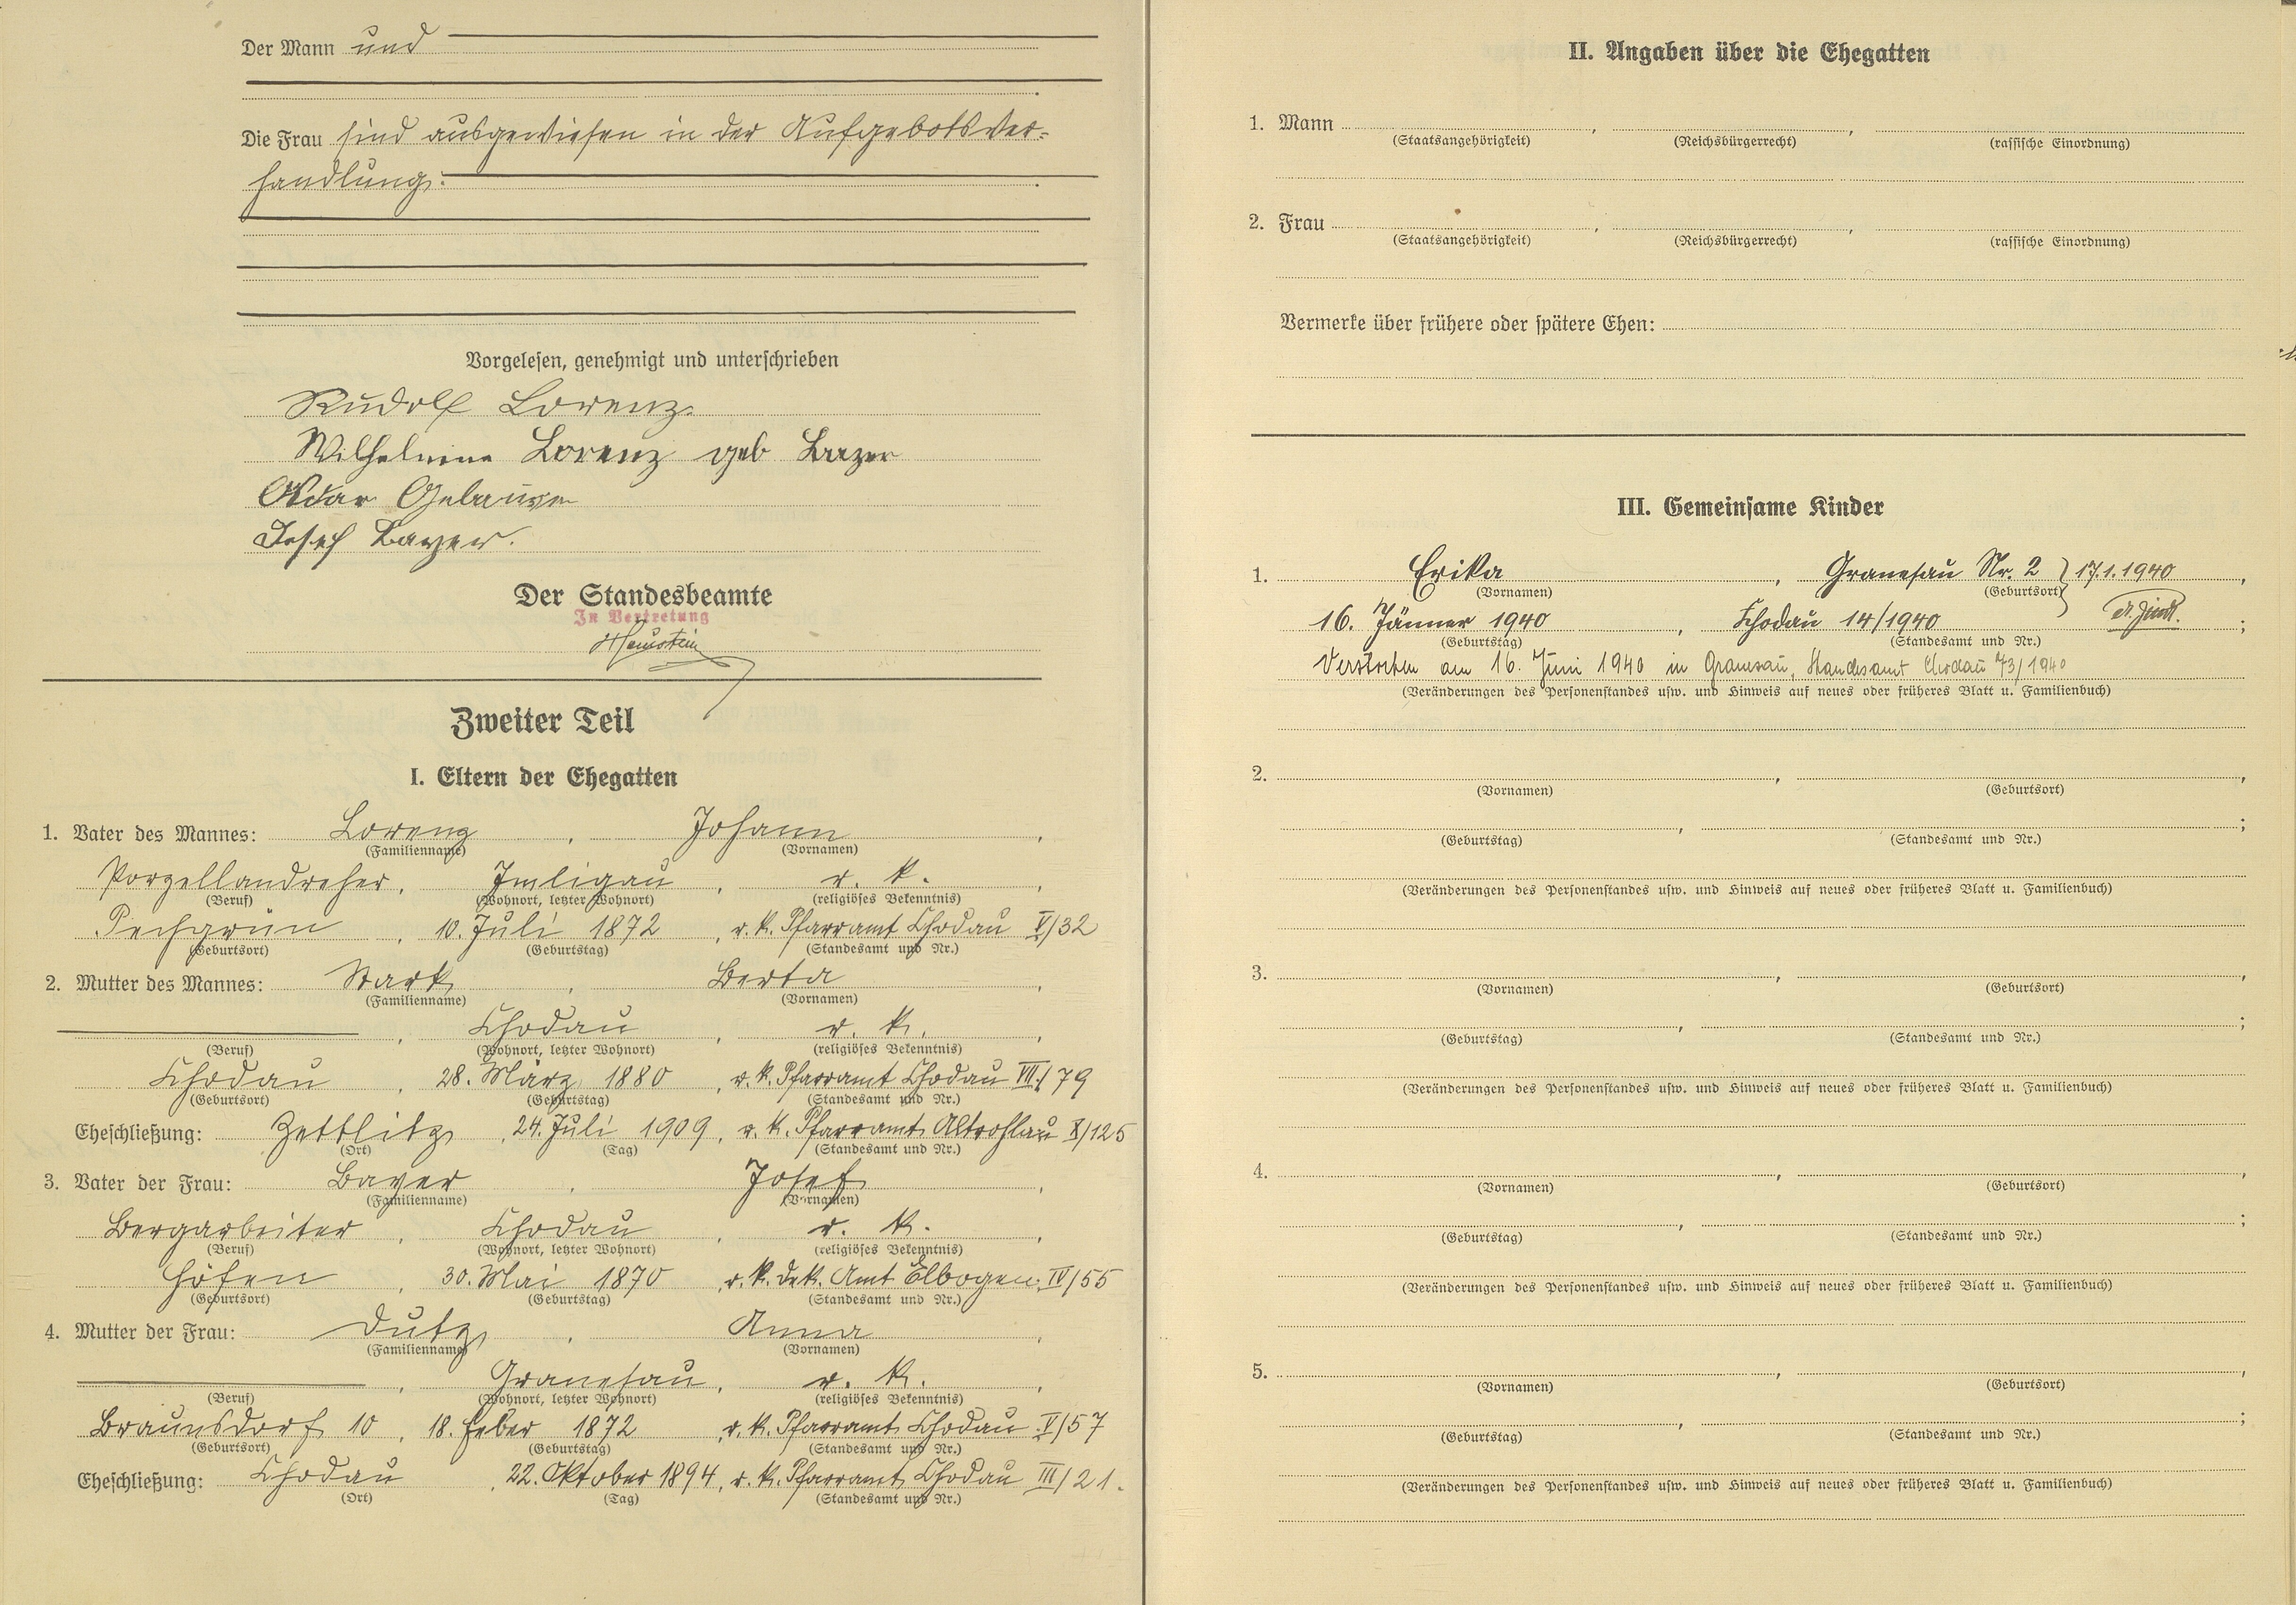 Der Mann und
Die Frau sind ausgewiesen in der Aufgebotsver-
handlung.
Vorgelesen, genehmigt und unterschrieben
Rudolf Lorenz
Wilhelmine Lorenz geb Bayer
Josef Bayer.
Der Standesbeamte
In Vertretung
Zweiter Teil
I. Eltern der Ehegatten
1. Vater des Mannes: Lorenz, Johann,
(Familienname) (Vornamen)
Porzellandreher, Imligau, r. k.,
(Beruf) (Wohnort, letzter Wohnort) (religiöses Bekenntnis)
Pechgrün, 10. Juli 1872, r. k. Pfarramt Chodau V/32
(Geburtsort) (Geburtstag) (Standesamt und Nr.)
2. Mutter des Mannes: Stark, Berta,
(Familienname) (Vornamen)
, Chodau, r. k.,
(Beruf) (Wohnort, letzter Wohnort) (religiöses Bekenntnis)
Chodau, 28. März 1880, r. k. Pfarramt Chodau VII/79
(Geburtsort) (Geburtstag) (Standesamt und Nr.)
Eheschließung: Zettlitz, 24. Juli 1909, r. k. Pfarramt Altrohlau X/125
(Ort) (Tag) (Standesamt und Nr.)
3. Vater der Frau: Bayer, Josef,
(Familienname) (Vornamen)
Bergarbeiter, Chodau, r. k.,
(Beruf) (Wohnort, letzter Wohnort) (religiöses Bekenntnis)
Höfen, 30. Mai 1870, r. k. Dek. Amt Elbogen IV/55
(Geburtsort) (Geburtstag) (Standesamt und Nr.)
4. Mutter der Frau: Dutz, Anna,
(Familienname) (Vornamen)
, Granesau, r. k.,
(Beruf) (Wohnort, letzter Wohnort) (religiöses Bekenntnis)
Braunsdorf 10, 18. Feber 1872, r. k. Pfarramt Chodau V/57
(Geburtsort) (Geburtstag) (Standesamt und Nr.)
Eheschließung: Chodau, 22. Oktober 1894, r. k. Pfarramt Chodau III/21.
(Ort) (Tag) (Standesamt und Nr.)
II. Angaben über die Ehegatten
1. Mann , ,
(Staatsangehörigkeit) (Reichsbürgerrecht) (rassische Einordnung)
2. Frau , ,
(Staatsangehörigkeit) (Reichsbürgerrecht) (rassische Einordnung)
Vermerke über frühere oder spätere Ehen:
III. Gemeinsame Kinder
1. Erika, Granesau Nr. 2 } 17.1.1940,
(Vornamen) (Geburtsort)
16. Jänner 1940, Chodau 14/1940;
(Geburtstag) (Standesamt und Nr.)
Verstorben am 16. Juni 1940 in Granesau, Standesamt Chodau 73/1940
(Veränderungen des Personenstandes usw. und Hinweis auf neues oder früheres Blatt u. Familienbuch)
2. , ,
(Vornamen) (Geburtsort)
, ;
(Geburtstag) (Standesamt und Nr.)
(Veränderungen des Personenstandes usw. und Hinweis auf neues oder früheres Blatt u. Familienbuch)
3. , ,
(Vornamen) (Geburtsort)
, ;
(Geburtstag) (Standesamt und Nr.)
(Veränderungen des Personenstandes usw. und Hinweis auf neues oder früheres Blatt u. Familienbuch)
4. , ,
(Vornamen) (Geburtsort)
, ;
(Geburtstag) (Standesamt und Nr.)
(Veränderungen des Personenstandes usw. und Hinweis auf neues oder früheres Blatt u. Familienbuch)
5. , ,
(Vornamen) (Geburtsort)
, ;
(Geburtstag) (Standesamt und Nr.)
(Veränderungen des Personenstandes usw. und Hinweis auf neues oder früheres Blatt u. Familienbuch)